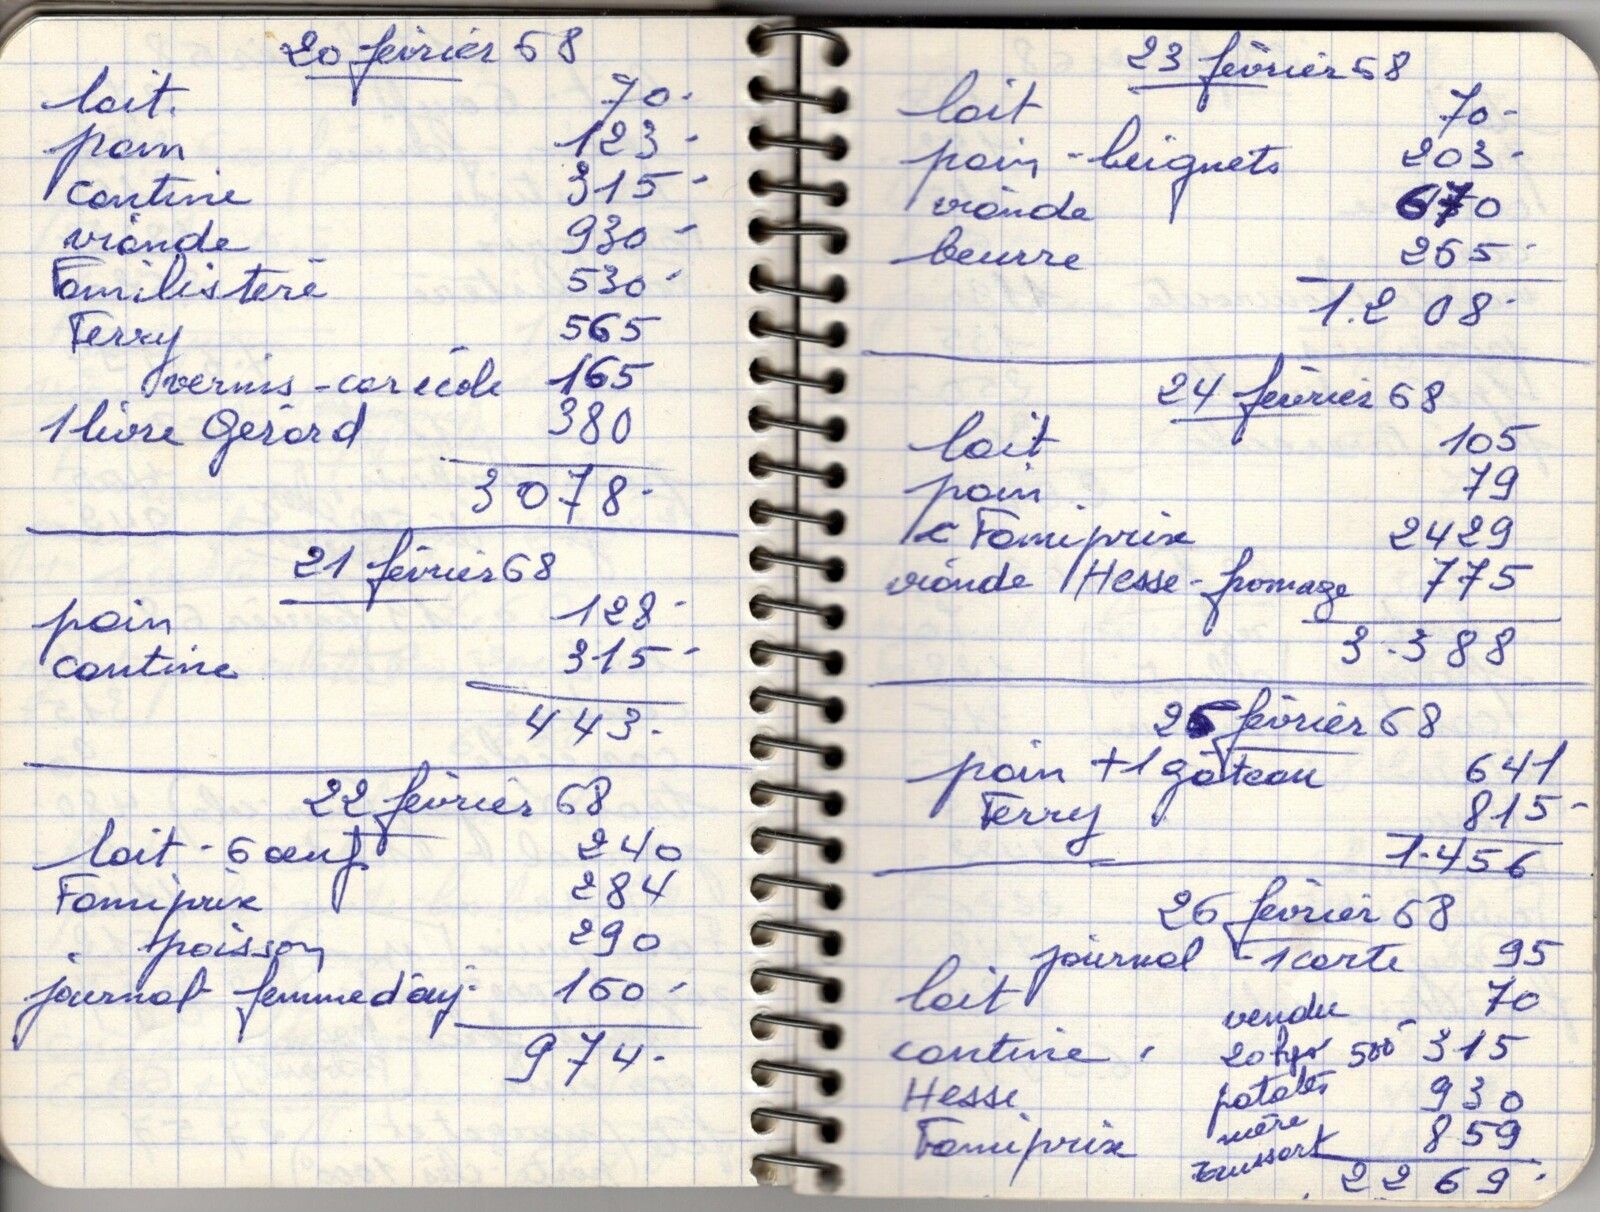 20 février 68
lait. 70.-
pain 123-
cantine 315-
viande 930-
Familistère 530-
Ferry 565
vernis-car école 165
1 livre Gérard 380
3078-
21 février 68
pain 128-
cantine 315-
443.
22 février 68
lait - 6 œufs 240
Famiprix 284
poisson 290
journal femme d'auj. 160-
974.
23 février 68
lait 70-
pain - beignets 203-
viande 670
beurre 265-
1.208-
24 février 68
lait 105
pain 79
Famiprix 2429
viande Hesse - fromage 775
3.388
25 février 68
pain + 1 gâteau 641
Ferry 815-
1.456
26 février 68
journal - 1 carte 95
lait 70
vendu
cantine 20 kgs 500 315
Hesse patates 930
mère
Famiprix 859
2269-